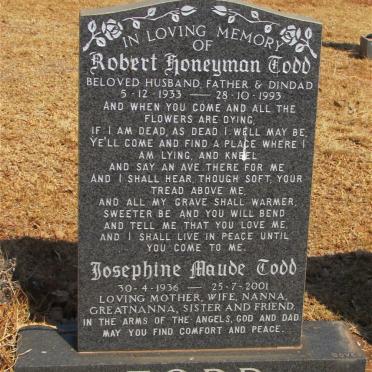 IN LOVING MEMORY
OF
Robert Honeyman Todd
BELOVED HUSBAND, FATHER & DINDAD
5-12-1933 — 28-10-1993
AND WHEN YOU COME AND ALL THE
FLOWERS ARE DYING,
IF I AM DEAD, AS DEAD I WELL MAY BE,
YE'LL COME AND FIND A PLACE WHERE I
AM LYING, AND KNEEL
AND SAY AN AVE THERE FOR ME
AND I SHALL HEAR, THOUGH SOFT YOUR
TREAD ABOVE ME,
AND ALL MY GRAVE SHALL WARMER,
SWEETER BE AND YOU WILL BEND
AND TELL ME THAT YOU LOVE ME,
AND I SHALL LIVE IN PEACE UNTIL
YOU COME TO ME.
Josephine Maude Todd
30-4-1936 — 25-7-2001
LOVING MOTHER, WIFE, NANNA,
GREATNANNA, SISTER AND FRIEND
IN THE ARMS OF THE ANGELS, GOD AND DAD
MAY YOU FIND COMFORT AND PEACE.
TODD